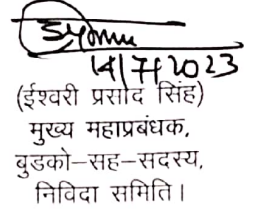 14/7/2023
(ईश्वरी प्रसाद सिंह)
मुख्य महाप्रबंधक,
बुडको-सह-सदस्य,
निविदा समिति।